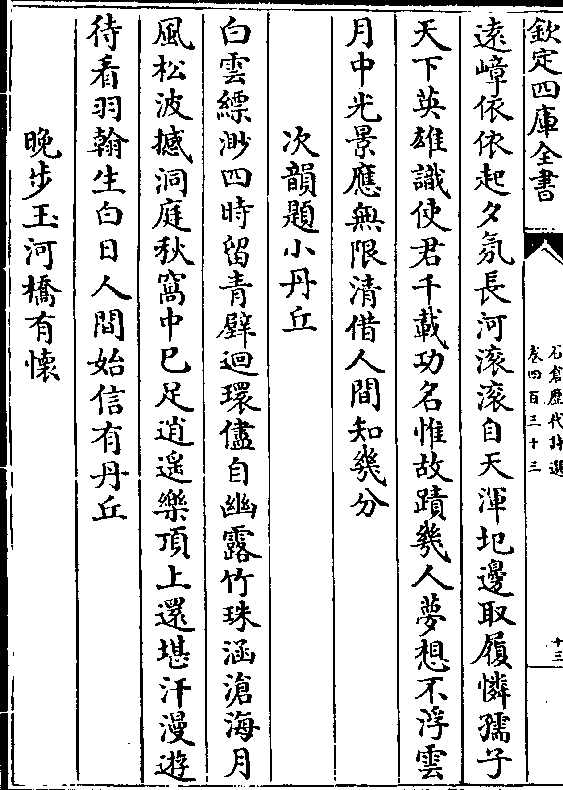 欽定四庫全書
石倉歷代詩選
卷四百三十三
十三
遠嶂依依起夕氛長河滚滚自天渾圯邊取履憐孺子
天下英雄識使君千載功名惟故蹟幾人夢想不浮雲
月中光景應無限清借人間知幾分
次韻題小丹丘
白雲縹渺四時留青壁迴環儘自幽露竹珠涵滄海月
風松波撼洞庭秋窩中已足逍遥樂頂上還堪汗漫遊
待看羽翰生白日人間始信有丹丘
晚步玉河橋有懷